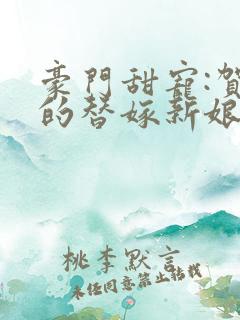 豪门甜宠:贺
的替嫁新娘
桃李默言
未经同意禁止转载